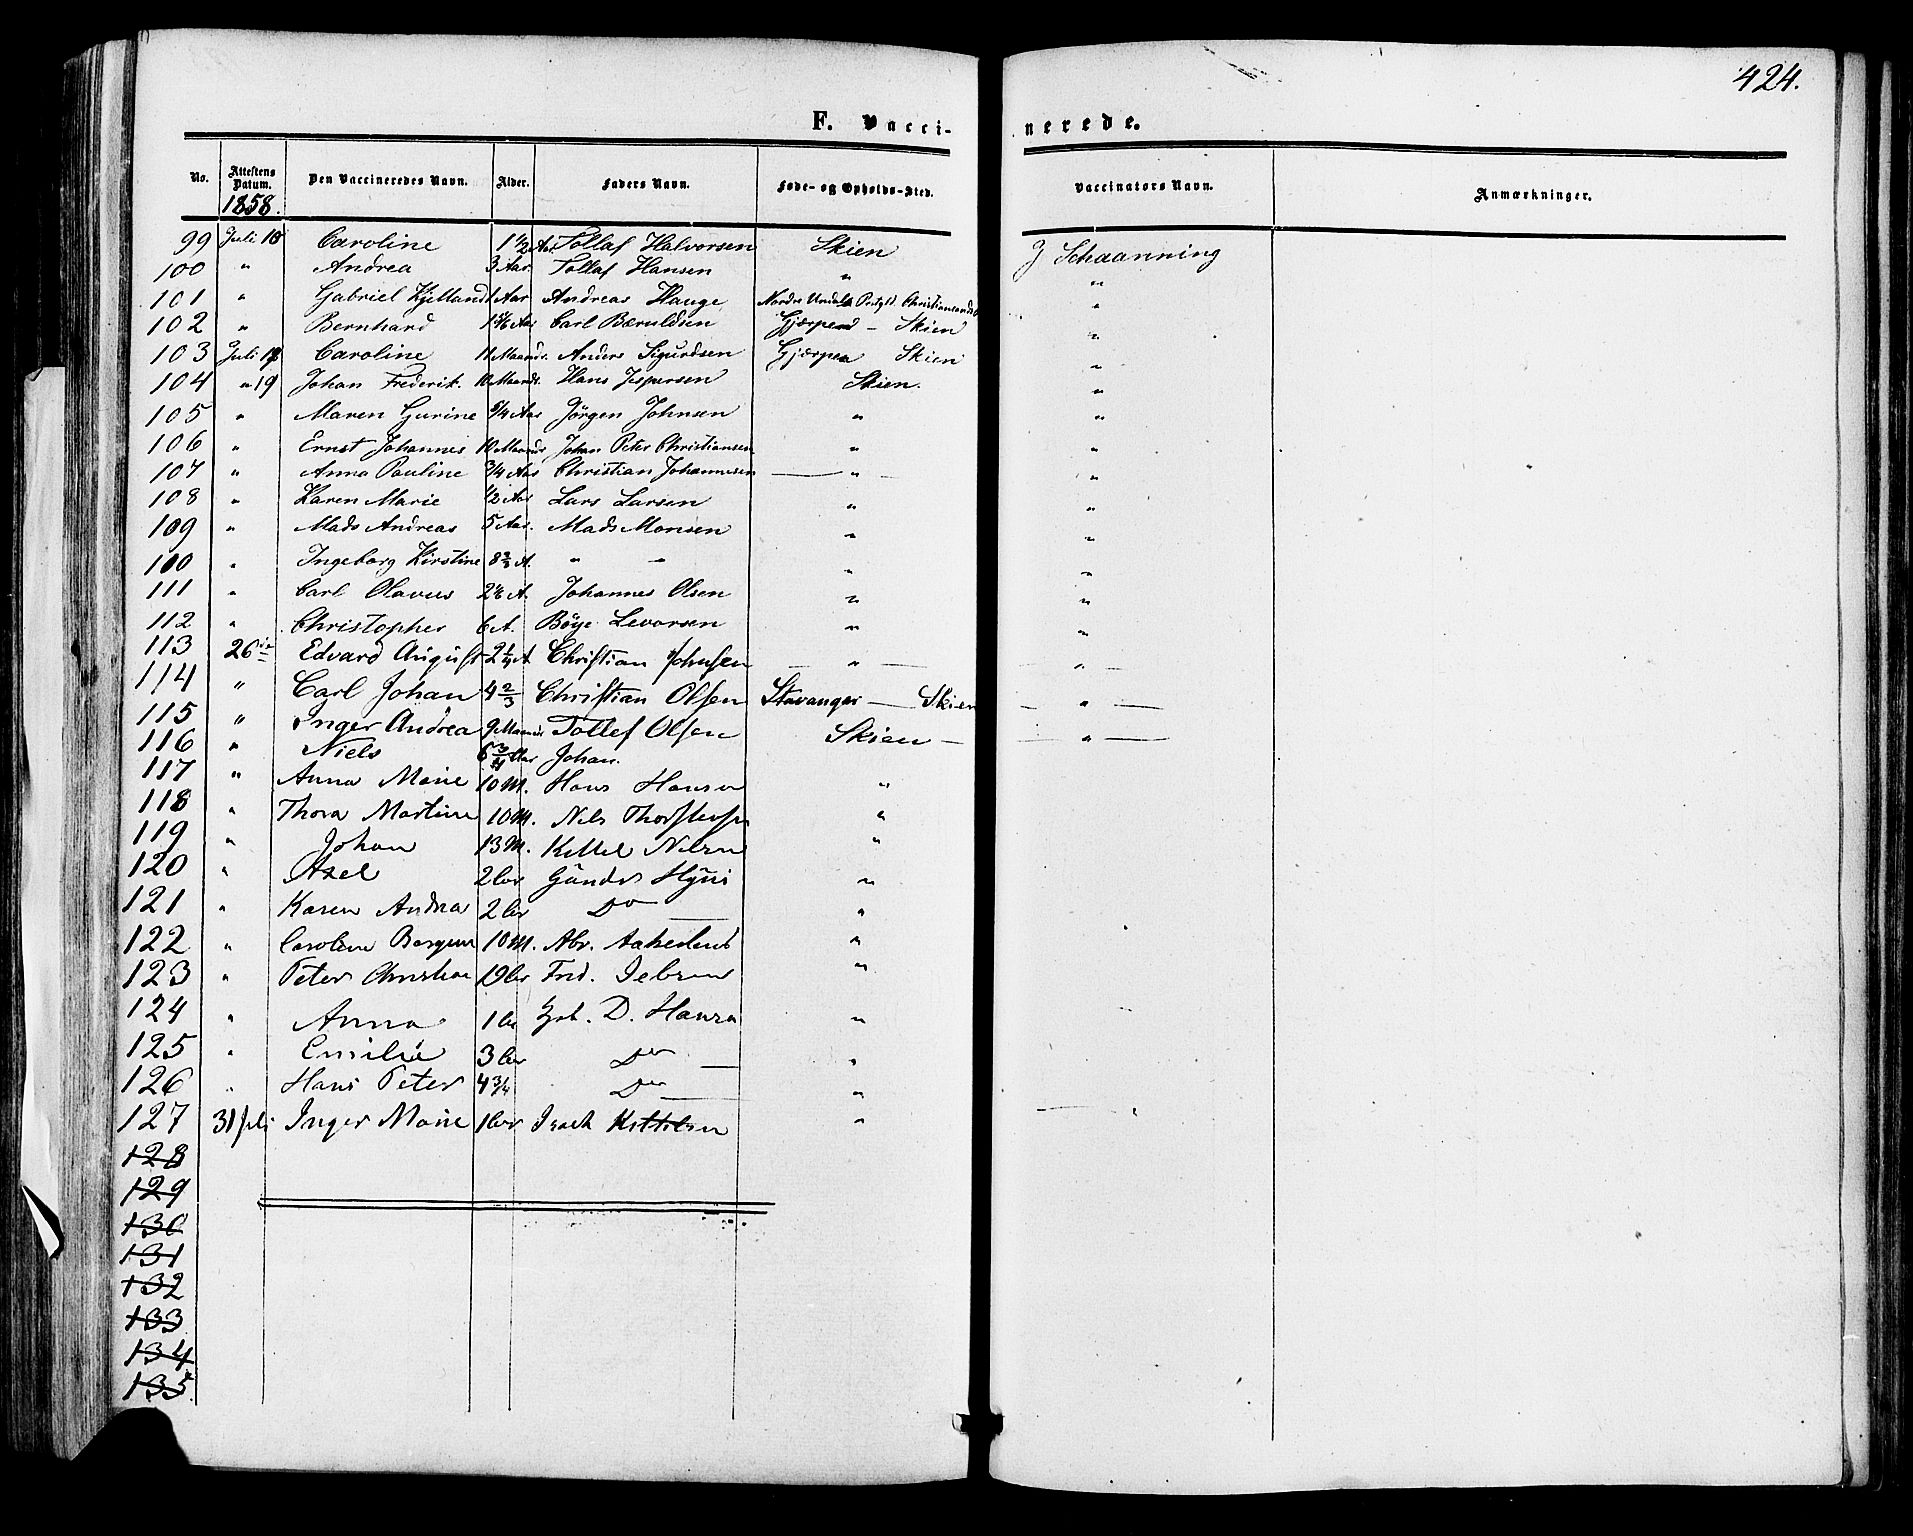 424.
F. Vaccinerede.
No. Attestens Datum. Den Vaccineredes Navn. Alder. Faders Navn. Føde- og Opholds-Sted. Vaccinators Navn. Anmærkninger.
1858.
99 Juli 16 Caroline 1 1/2 Aar Tollaf Halvorsen Skien J Schaanning
100 " Andrea 3 Aar. Tollaf Hansen " "
101 " Gabriel Kjelland 1 Aar Andreas Hauge Nordre Undals "
102 " Bernhard Aar Carl Bæruldsen Gjerpen – Skien "
103 Juli Caroline 11 Maander. Anders Sigurdsen Gjerpen Skien "
104 " 19 Johan Frederik. 10 Maand. Hans Jespersen Skien. "
105 " Maren Gurine 5/4 Aar Jörgen Johnsen " "
106 " Ernst Johannes 10 Maand Johan Peter Christiansen " "
107 " Anna Pauline 3/4 Aar Christian Johannesen — " — "
108 " Karen Marie 1/2 Aar Lars Larsen " "
109 " Mads Andreas 5 Aar. Mads Monsen " "
110 " Ingeborg Kirstine 8 2/3 A. " " " "
111 " Carl Olavus A. Johannes Olsen " "
112 " Christopher 6 A. Böye Levorsen " "
113 26de Edvard August 2 1/4 A Christian Johnsen — " — "
114 " Carl Johan 4 2/3 Christian Olsen Stavanger — Skien — " —
115 " Inger Andrea 9 Maand Tollef Olsen Skien — — " —
116 " Niels 6 3/4 Aar Johan.
117 " Anna Marie 10 M. Hans Hansen "
118 " Thora Martine 10 M. Nils Thorstensen "
119 " Johan 13 M. Kittel Nilsen "
120 " Axel 2 Aar Gunder "
121 " Karen Andrea 2 Aar Do — "
122 " Caroline 10 M. Abr. "
123 " Peter Christian Aar Fred. "
124 " Anna 1 Aar D. Hansen "
125 " Emilie 3 Aar Do — "
126 " Hans Peter 4 3/4 Do — "
127 31 Juli Inger Marie 1 Aar Isach Kittilsen "
128
129
130
131
132
133
134
135.